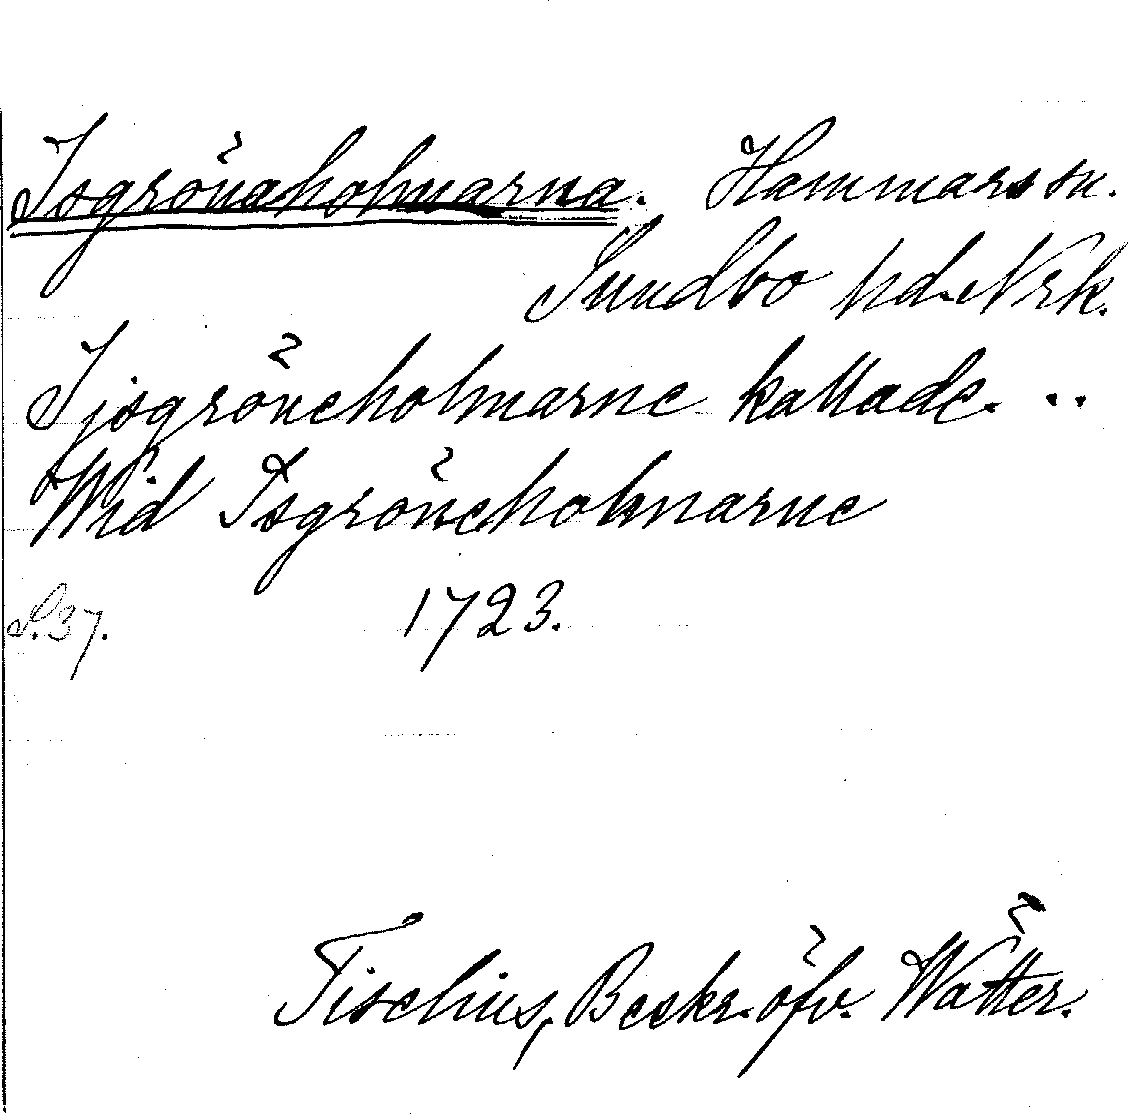 Isgrönaholmarna. Hammars sn.
Sundbo hd. Nrk.
Ijsgröneholmarne kallade. ..
Wid Isgröneholmarne
S. 37. 1723.
Tiselius, Beskr. öfv. Wätter.